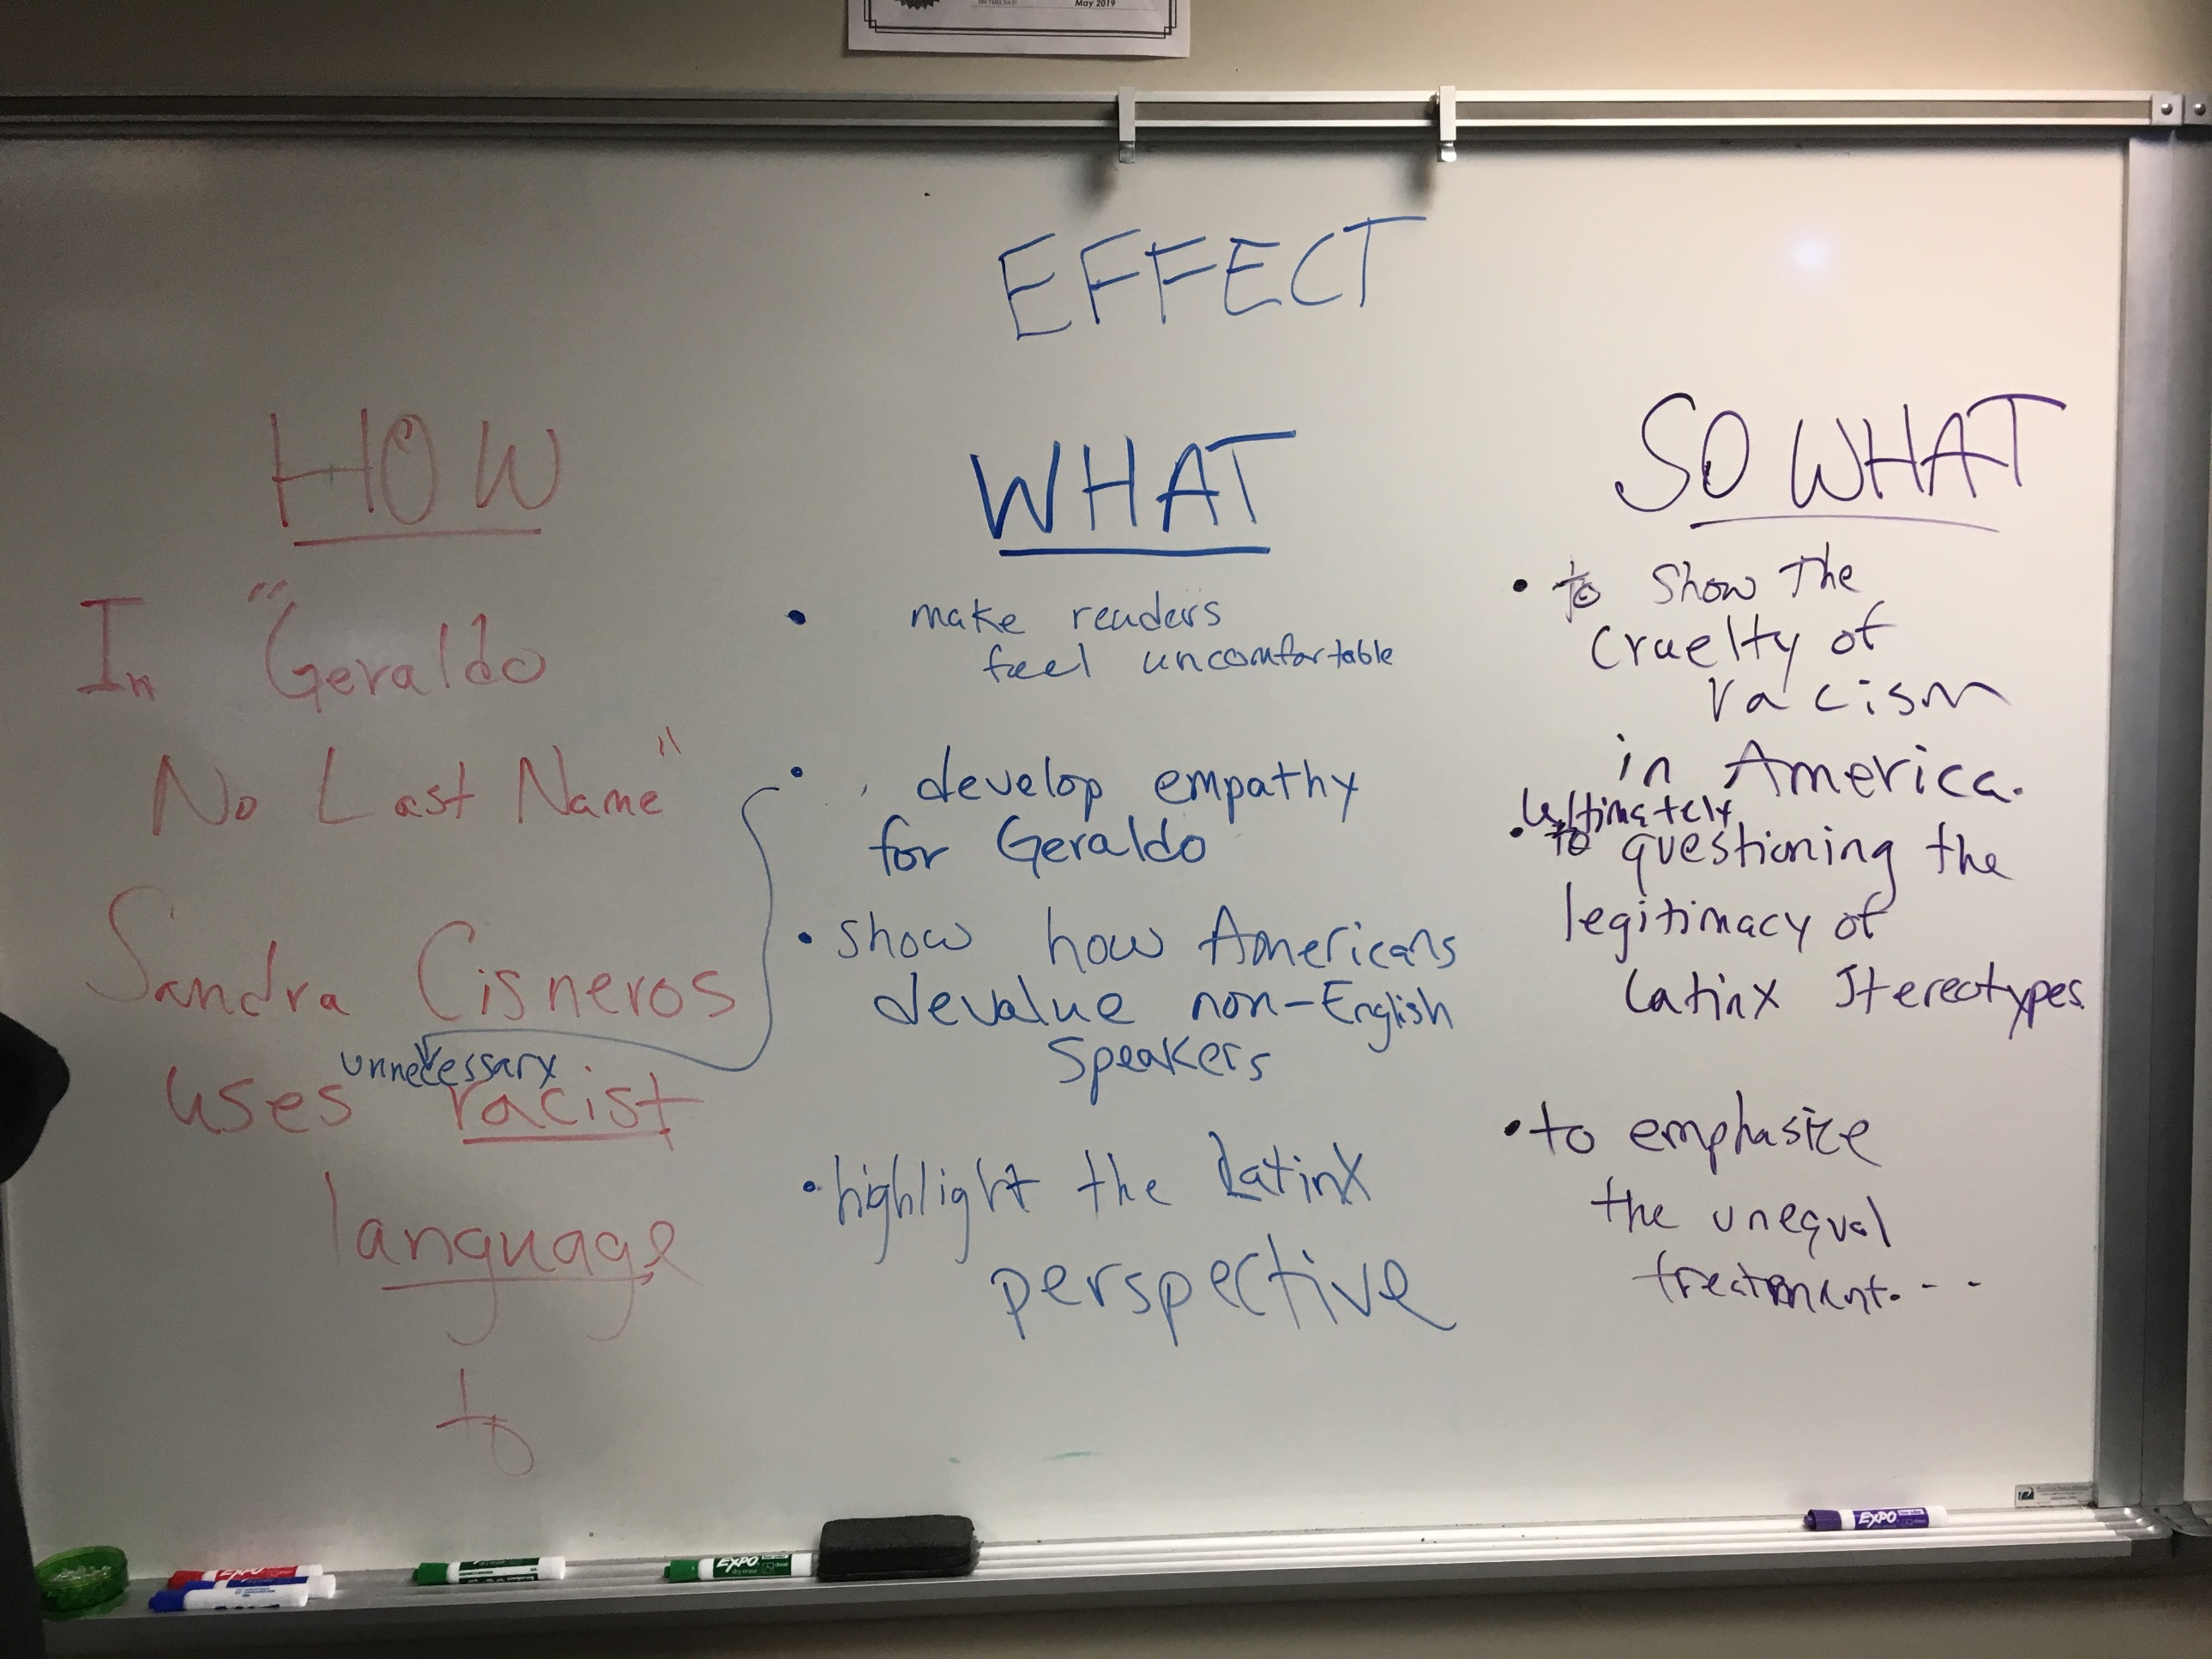 May 2019
EFFECT
HOW
In "Geraldo
No Last Name"
Sandra Cisneros
unnecessary
uses racist
language
to
WHAT
• make readers
feel uncomfortable
• develop empathy
for Geraldo
• show how Americans
devalue non-English
speakers
• highlight the Latinx
perspective
SO WHAT
• to show the
cruelty of
racism
in America.
ultimately
• to questioning the
legitimacy of
Latinx stereotypes
• to emphasize
the unequal
treatment...
EXPO
EXPO
EXPO